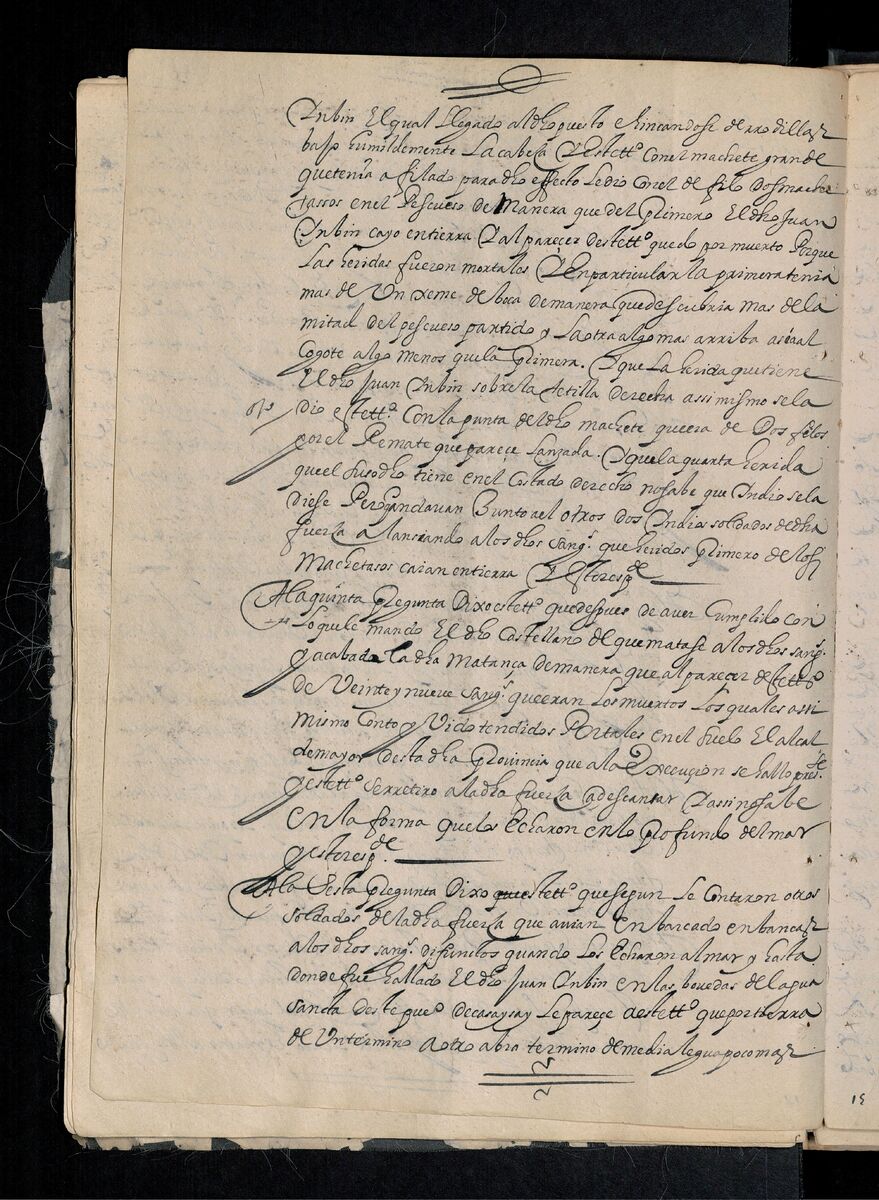 Inbin El qual Llegado al dho puesto e hincandose de rrodillas
baxo humildemente La cabeça Y este tto con el machete grande
que tenia afilado para dho effecto Le dio con el de filo Dos mache
tassos en el Pescueso de Manera que del Primero El dho Juan
Inbin cayo en tierra Y al parecer deste tto quedo por muerto Porque
Las heridas fueron mortales Y En particular la primera tenia
mas de Un xeme de boca de manera que descubria mas de la
mitad del pescueso partido y La otra algo mas arriba asia al
Cogote algo menos que la Primera. Y que La herida que tiene
El dho Juan Inbin sobre la tetilla derecha assi mismo se la
dio este tto Con la punta del dho machete que era de Dos filos
por el Remate que pareçe Lanzada. Y que la quarta herida
que el susodho tiene en el Costado derecho no sabe que Indio se la
diese Pero andauan Junto a el otros dos Indios soldados de dha
fuerza alanseando a los dhos sangs que heridos Primero de los
Machetasos caian en tierra Y esto respde
A la quinta Pregunta Dixo este tto que despues de auer Cumplido con
Lo que le mando El dho Castellano de que matase a los dhos sangs
y acabada La dha Matança de manera que al parecer deste tto
de Veinte y nueve sangs que eran Los muertos Los quales assi
mismo Conto y Vido tendidos Por tales en el suelo El alcal
de mayor desta dha Prouinçia que a la Execuçion se hallo presse
y este tto se rretiro a la dha fuerza a descansar Y assi no sabe
en la forma que los Echaron en lo Profundo del mar
y esto respde.
A la Sesta Pregunta Dixo este tto que segun Le Contaron otros
soldados de la dha fuerza que auian Enbarcado en bancas
a los dhos sangs difunctos quando Los Echaron al mar y hasta
donde fue hallado El dho Juan Inbin en las bouedas del agua
sancta deste pueo de casaysay Le pareçe a este tto que por tierra
de Un termino a otro abra termino de media legua poco mas
15